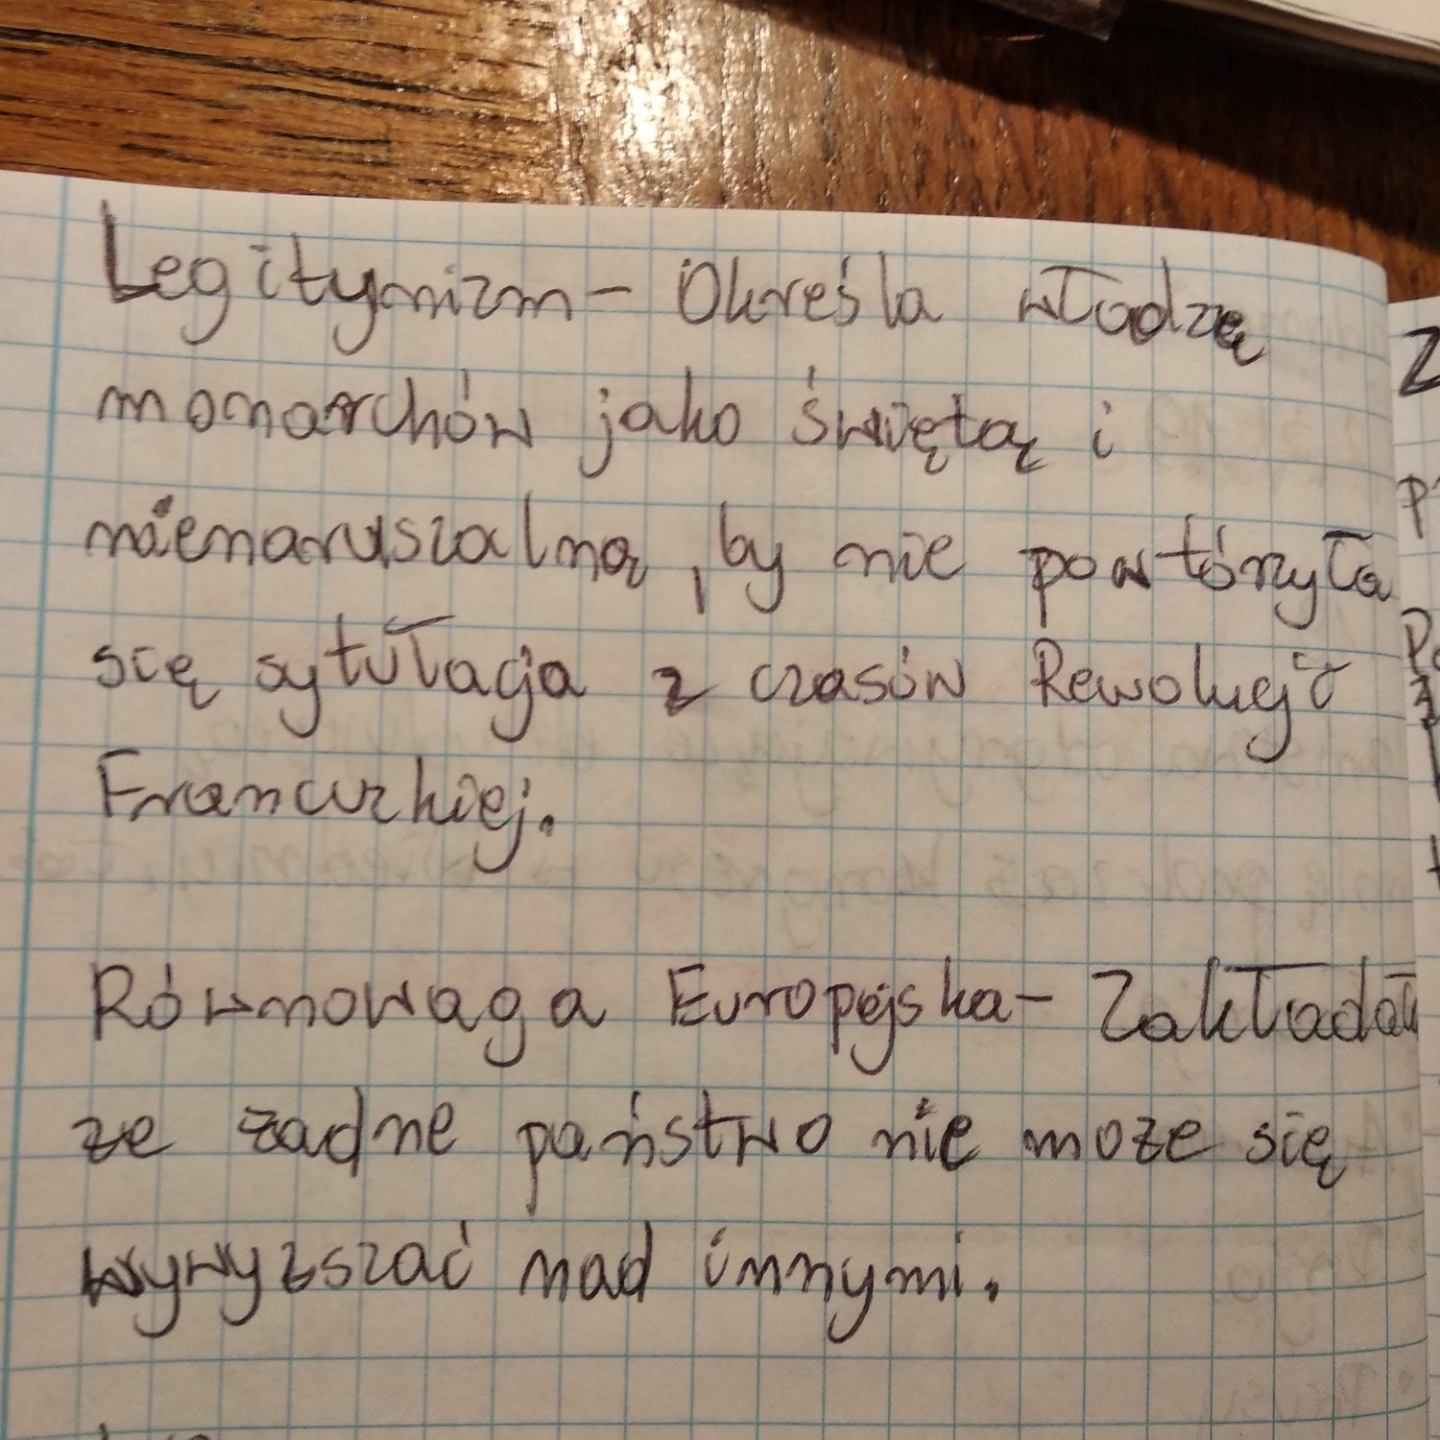 Legitymizm - Określa władzę
monarchów jako świętą i
nienaruszalną, by nie powtórzyła
się sytułacja z czasów Rewolucji
Francuzkiej.
Równowaga Europejska - Zakłada
że żadne państwo nie może się
wywyższać nad innymi.